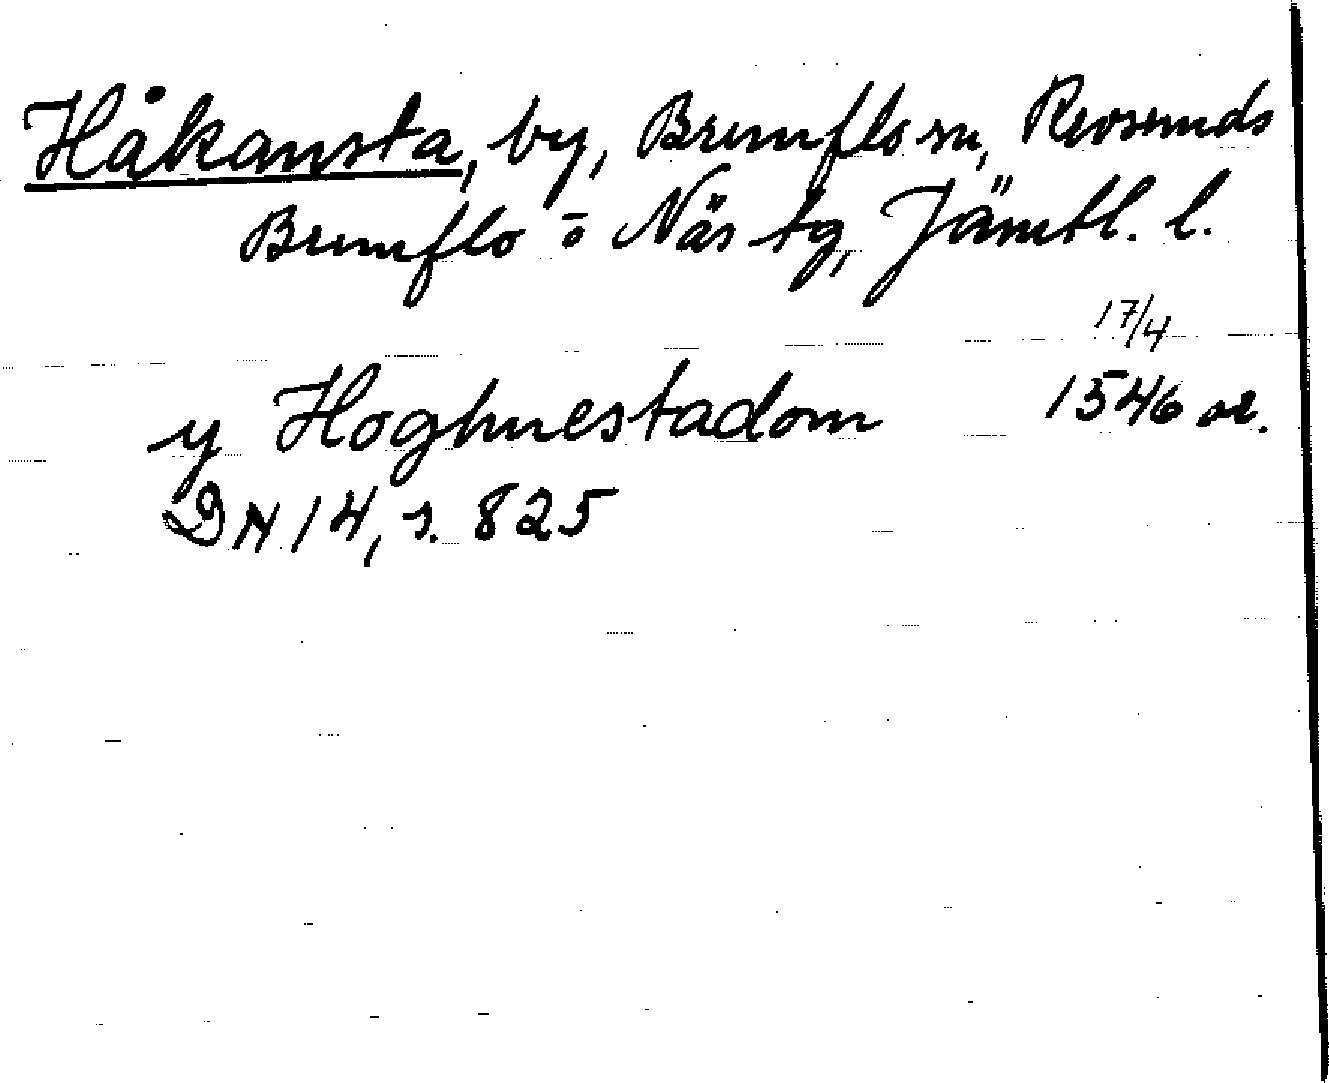 Håkansta, by, Brunflo sn, Revsunds
Brunflo o Näs tg, Jämtl. l.
17/4
y Hoghnestadom 1546 or.
DN 14, s. 825